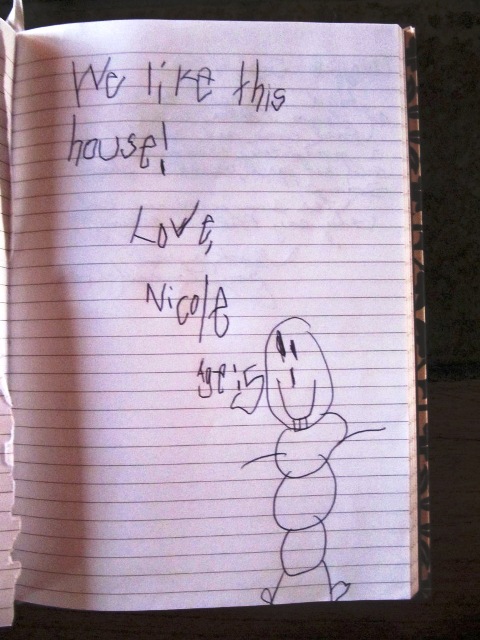 We like this
house!
Love,
Nicole
age:5